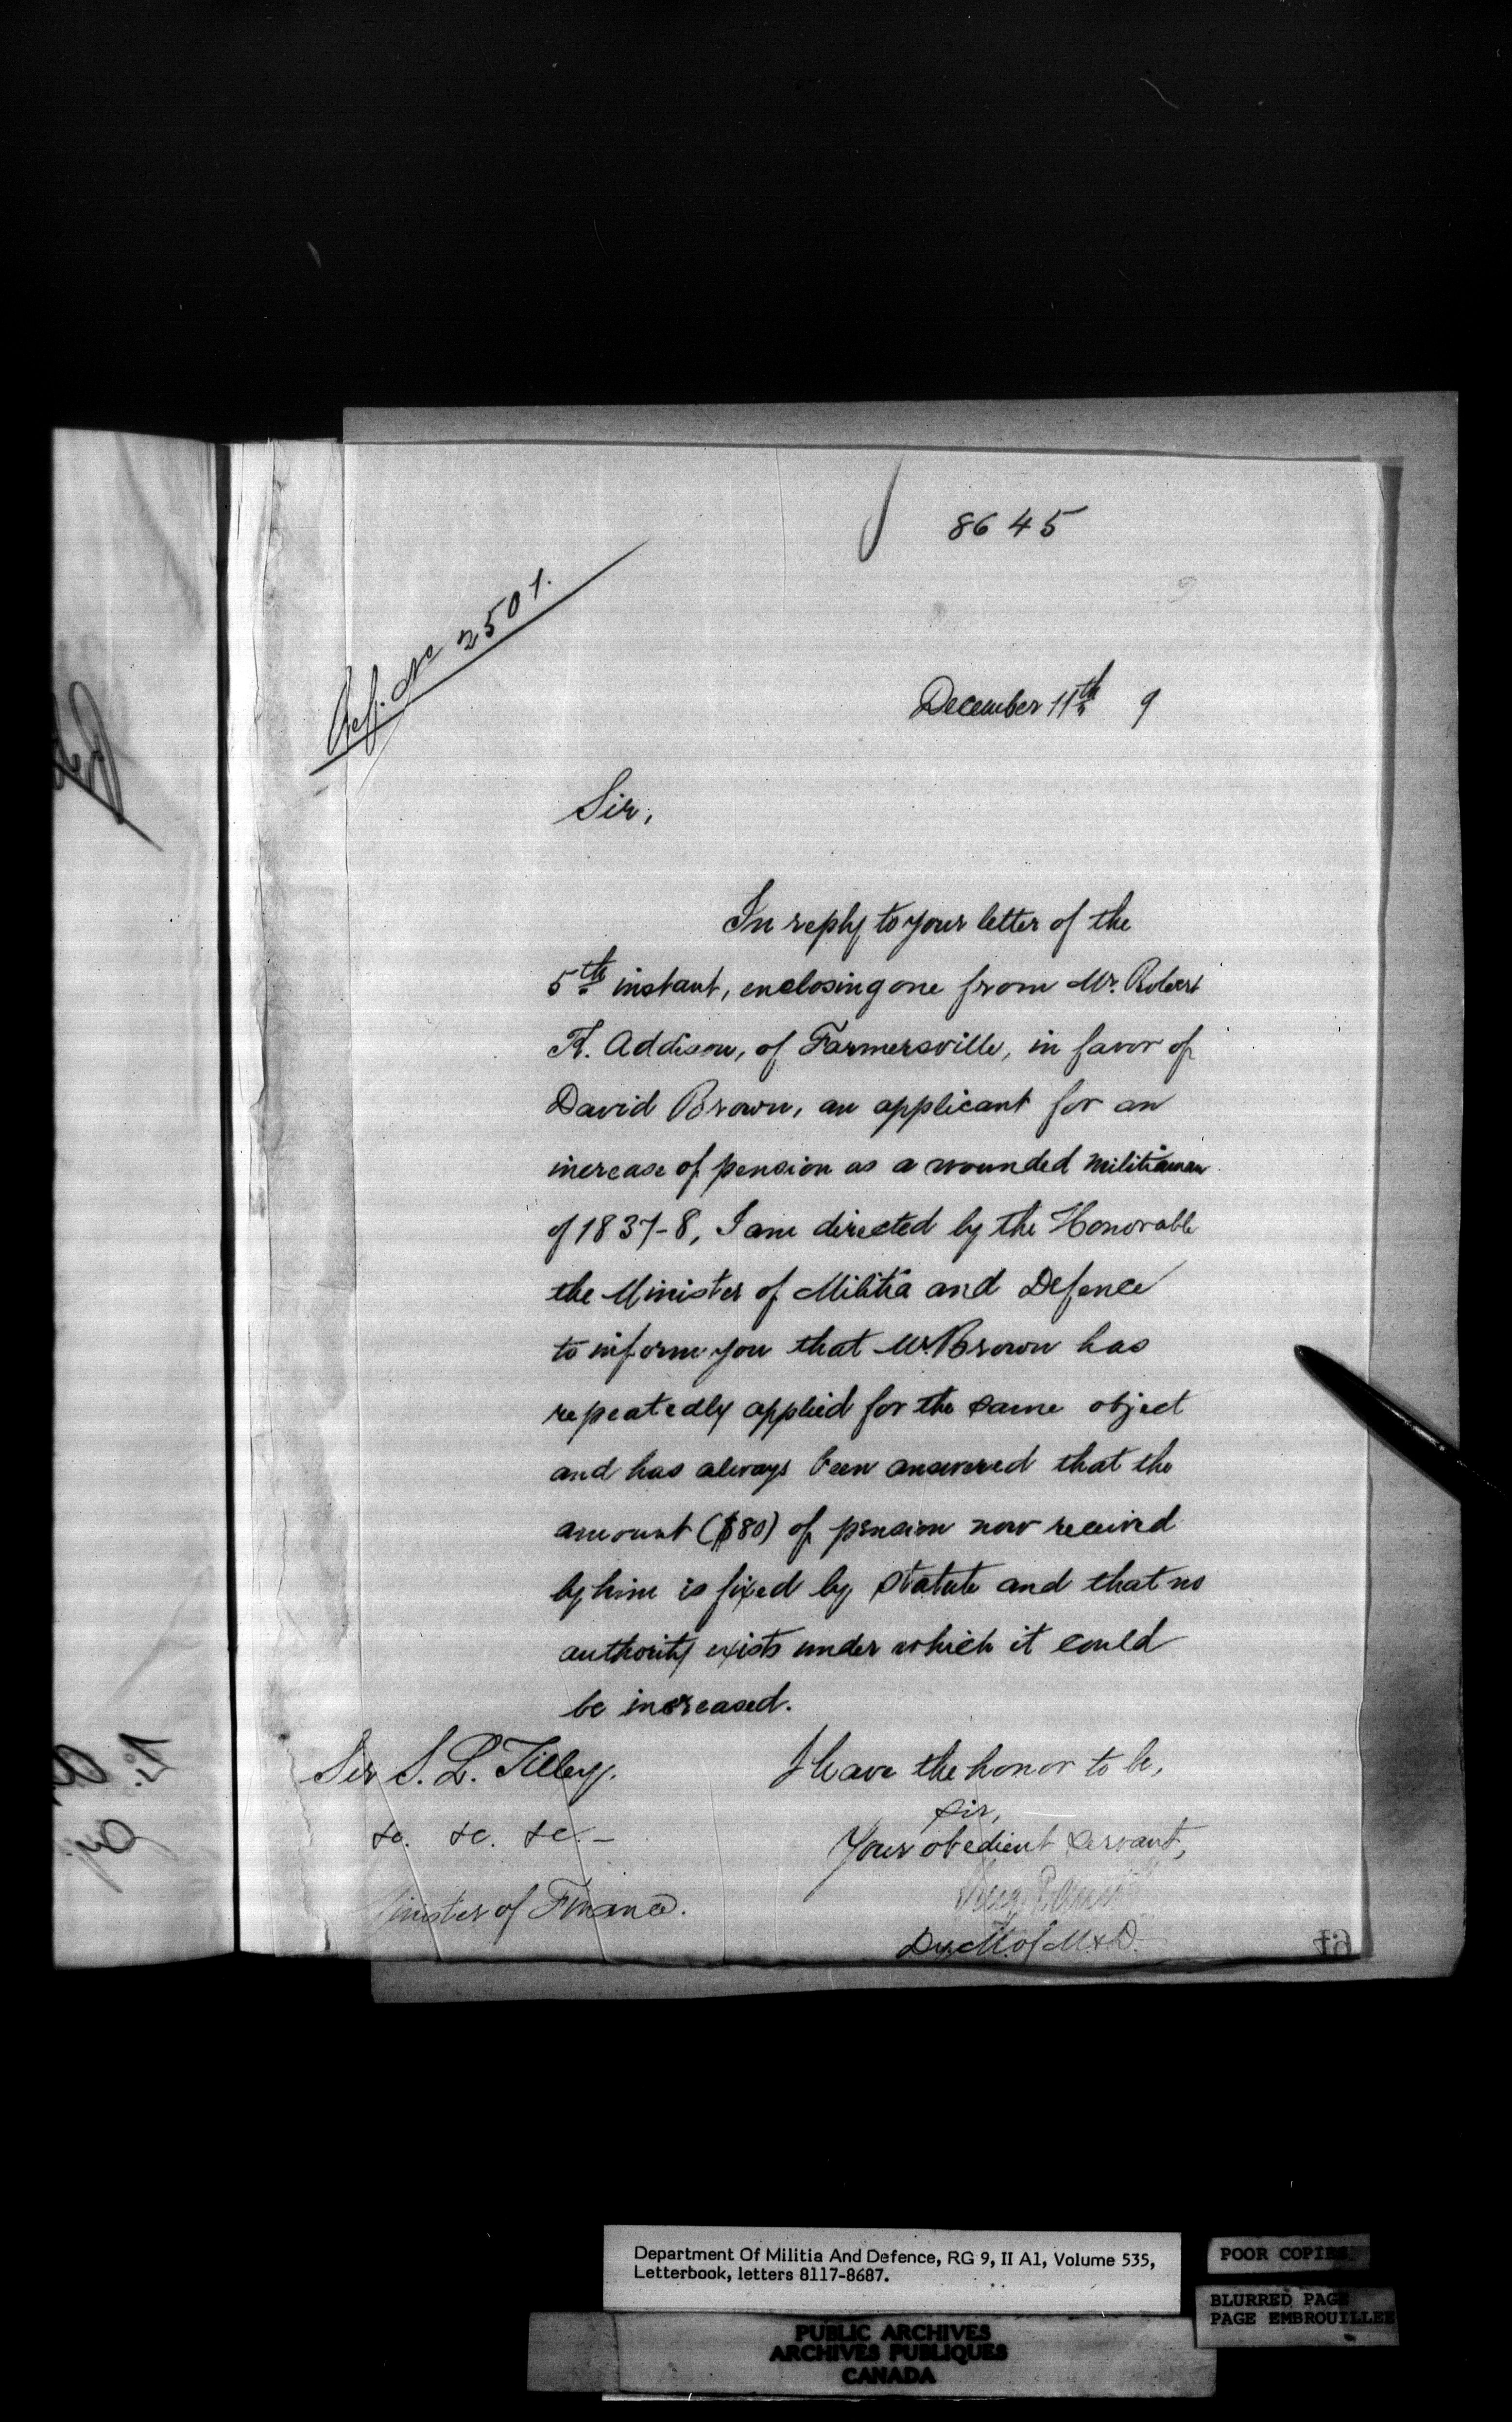 8645
Ref. No 2501.
December 11th 9
Sir,
In reply to your letter of the
5th instant, enclosing one from Mr. Robert
K. Addison, of Farmersville, in favor of
David Brown, an applicant for an
increase of pension as a wounded militiaman
of 1837-8, I am directed by the Honorable
the Minister of Militia and Defence
to inform you that Mr. Brown has
repeatedly applied for the same object
and has always been answered that the
amount ($80) of pension now received
by him is fixed by statute and that no
authority exists under which it could
be increased.
I have the honor to be,
Sir,
Your obedient servant,
Dy. M. of M. & D.
Sir S. L. Tilley.
&c. &c. &c. –
Minister of Finance.
Department Of Militia And Defence, RG 9, II A1, Volume 535,
Letterbook, letters 8117-8687.
POOR COPIES
BLURRED PAGE
PAGE EMBROUILLEE
PUBLIC ARCHIVES
ARCHIVES PUBLIQUES
CANADA